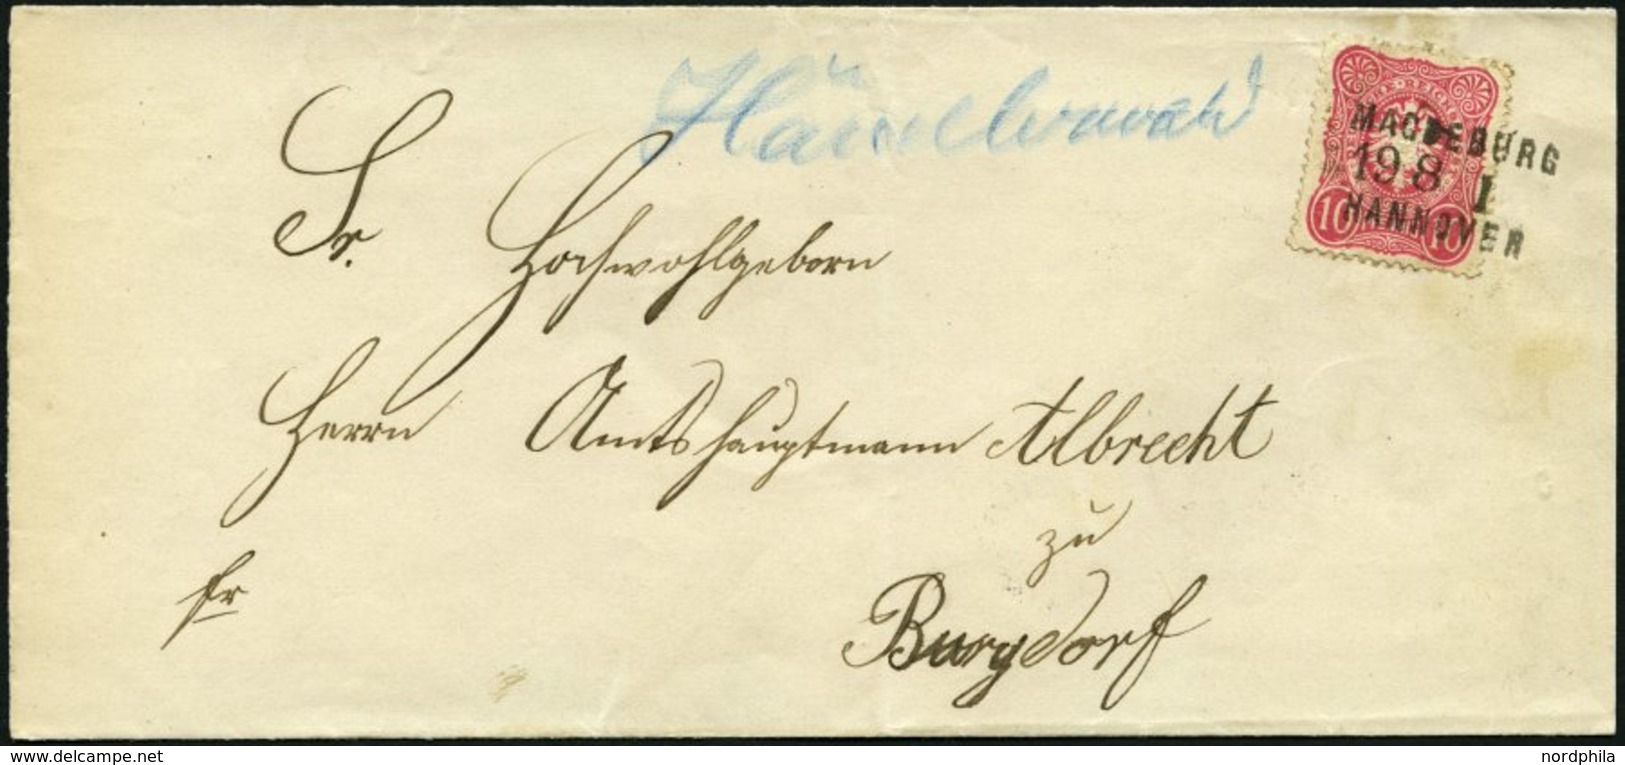 MAGDEBURG
19 8 I
HANNOVER
10 10
Sr. Hochwohlgeborn
Herrn Amtshauptmann Albrecht
zu
fr
Burgdorf
www.delcampe.net
nordphila